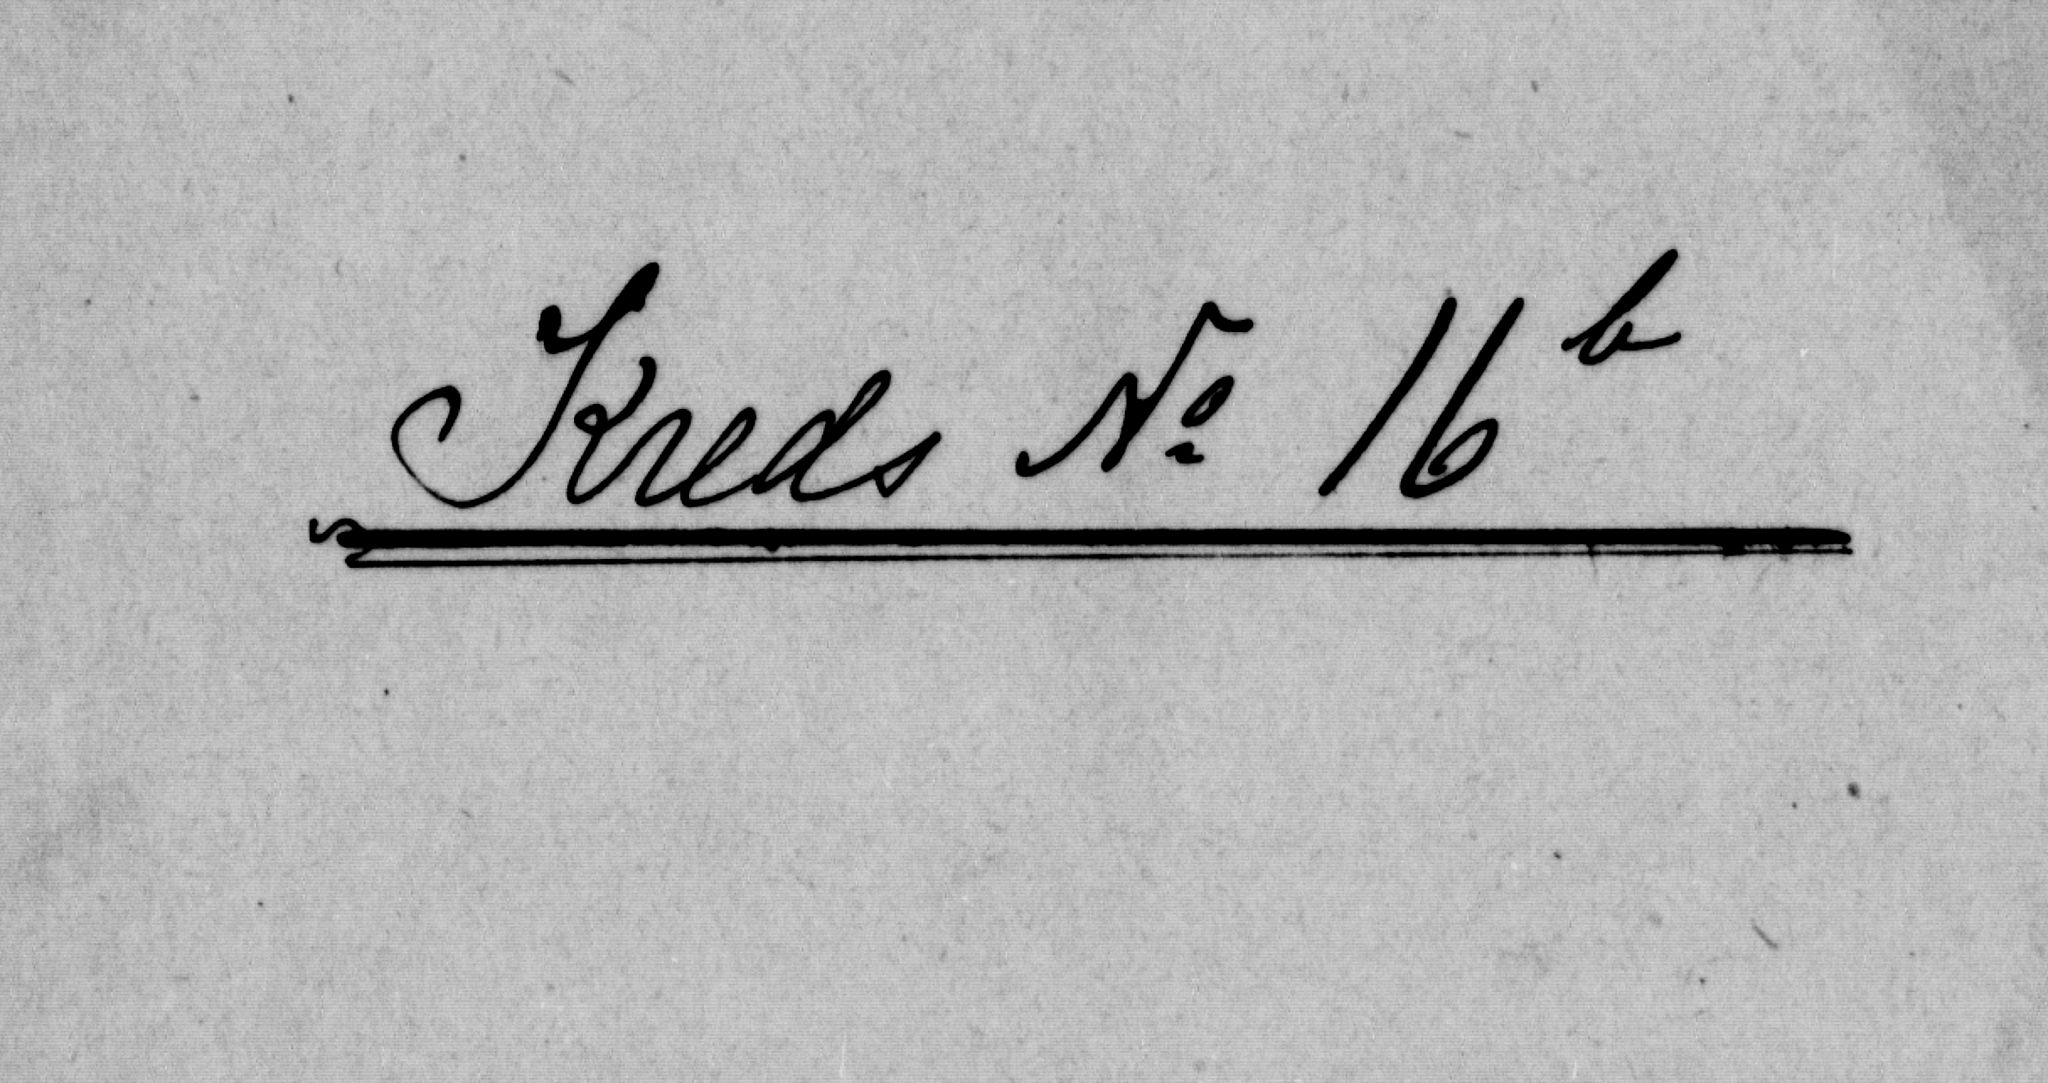 Kreds No 16b